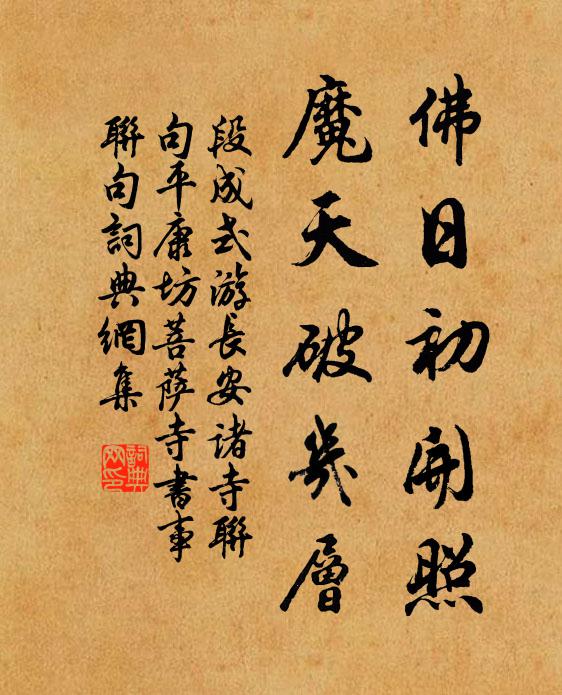 佛日初開照
魔天破幾層
段成式游長安諸寺聯
句平康坊菩萨寺書事
聯句詞典網集
詞典
网印